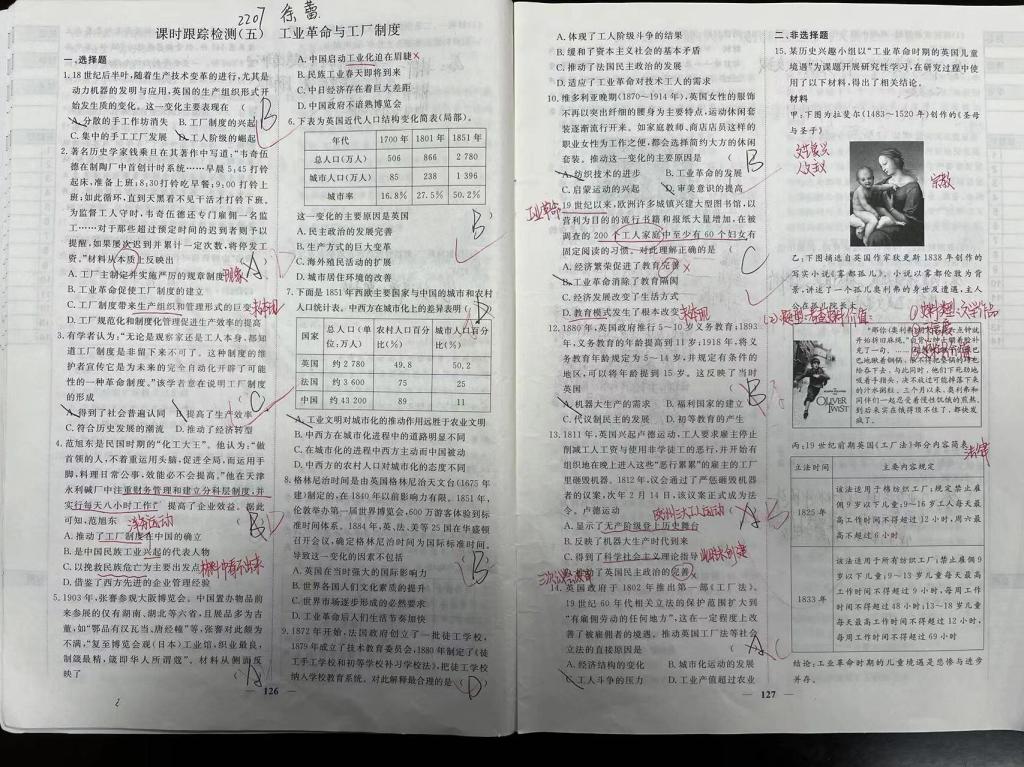 2207 徐蕾
课时跟踪检测(五) 工业革命与工厂制度
一、选择题
1.18世纪后半叶,随着生产技术变革的进行,尤其是
动力机器的发明与应用,英国的生产组织形式开
始发生质的变化。这一变化主要表现在 (
B
A.分散的手工作坊消失 B.工厂制度的兴起
C.集中的手工工厂发展 D.工人阶级的崛起
2.著名历史学家钱乘旦在其著作中写道:“韦奇伍
德在制陶厂中首创计时系统……早晨5:45打铃
起床、准备上班;8:30打铃吃早餐;9:00打铃上
班;如此循环,直到天黑看不见干活才打铃下班。
为监督工人守时,韦奇伍德还专门雇佣一名监
工……对于那些超过预定时间的迟到者则予以
提醒,如果屡次迟到并累计一定次数,将停发工
资。”材料从本质上反映出
A D
A.工厂主制定并实施严厉的规章制度 现象
B.工业革命促使工厂制度的建立
C.工厂制带来生产组织和管理形式的巨变 未体现
D.工厂规范化和制度化管理促进生产效率的提高
3.有学者认为:“无论是观察家还是工人本身,都知
道工厂制度是非留下来不可了。这种制度的维
护者宣传它是为未来的完全自动化开辟了可能
性的一种革命制度。”该学者意在说明工厂制度
的形成
C
A.得到了社会普遍认同 B.提高了生产效率
C.符合历史发展的潮流 D.推动了经济转型
4.范旭东是民国时期的“化工大王”。他认为:“做
首领的人,不着重运用头脑,促进全局,而运用手
脚,料理日常公事,效能必不会提高。”他在天津
永利碱厂中注重财务管理和建立分科层制度,并
实行每天八小时工作制,提高了企业效益。据此
可知,范旭东 洋务运动
B D
A.推动了工厂制度在中国的确立
B.是中国民族工业兴起的代表人物
C.以挽救民族危亡为主要出发点 材料中看不出来
D.借鉴了西方先进的企业管理经验
5.1903年,张謇参观大阪博览会。中国置办物品前
来参展的仅有湖南、湖北等六省,且展品多为古
董,如“鄂品有汉瓦当、唐经幢”等,张謇对此颇为
不满,“复至博览会观(日本)工业馆,织业最良,
制箴最精,箴即华人所谓蔻”。材料从侧面反
映了
A
A.中国启动工业化迫在眉睫
B.民族工业春天即将到来
C.中日经济存在着巨大差距
D.中国政府不谙熟博览会
6.下表为英国近代人口结构变化简表(局部)。
年代 1700年 1801年 1851年
总人口(万人) 506 866 2 780
城市人口(万人) 85 238 1 396
城市率 16.8% 27.5% 50.2%
这一变化的主要原因是英国
B
A.民主政治的发展完善
B.生产方式的巨大变革
C.海外殖民活动的扩展
D.城市居住环境的改善
7.下面是1851年西欧主要国家与中国的城市和农村
人口统计表。中西方在城市化上的差异表明(
国家 总人口(单位:万人) 农村人口百分比(%) 城市人口百分比(%)
英国 约2 780 49.8 50.2
法国 约3 600 75 25
中国 约43 200 89 11
A.工业文明对城市化的推动作用远胜于农业文明
B.中西方在城市化进程中的道路明显不同
C.在城市化的进程中西方主动而中国被动
D.中西方的农村人口对城市化的态度不同
8.格林尼治时间是由英国格林尼治天文台(1675年
建)制定的,在1840年以前影响力有限。1851年,
伦敦举办第一届世界博览会,600万游客体验到标
准时间体系。1884年,英、法、美等25国在华盛顿
召开会议,确定格林尼治时间为国际标准时间。
导致这一变化的因素不包括
B
A.英国在当时强大的国际影响力
B.世界各国人们文化素质的提升
C.世界市场逐步形成的必然要求
D.工业革命后人们生活节奏加快
9.1872年开始,法国政府创立了一批徒工学校,
1879年成立了技术教育委员会,1880年制定了《徒
工手工学校和初等学校补习学校法》,把徒工学校
纳入学校教育系统。对此解释最合理的是 (D)
126
A.体现了工人阶级斗争的结果
B.缓和了资本主义社会的基本矛盾
C.推动了法国民主政治的发展
D.适应了工业革命对技术工人的需求
10.维多利亚晚期(1870~1914年),英国女性的服饰
不再以突出纤细的腰身为主要特点,运动休闲套
装逐渐流行开来。如家庭教师、商店店员这样的
职业女性为工作之便,都会选择简约大方的休闲
套装。推动这一变化的主要原因是 (
B
A.纺织技术的进步 B.工业革命的发展
C.启蒙运动的兴起 D.审美意识的提高
工业革命
11.19世纪以来,欧洲许多城镇兴建大型图书馆,以
营利为目的的流行书籍和报纸大量增加,在被
调查的200个工人家庭中至少有60个妇女有
固定阅读的习惯。对此理解正确的是 (
C
A.经济繁荣促进了教育完善
B.工业革命消除了教育隔阂
C.经济发展改变了生活方式
D.教育模式发生了根本改变 未体现
12.1880年,英国政府推行5~10岁义务教育;1893
年,义务教育的年龄提高到11岁;1918年,将义
务教育年龄规定为5~14岁,并规定有条件的
地区,可以将年龄提到15岁。这反映了当时
英国
B
A.机器大生产的需求 B.福利国家的建立
C.代议制民主的发展 D.初等教育的产生
13.1811年,英国兴起卢德运动,工人要求雇主停止
削减工人工资与使用非学徒工的恶行,并开始有
组织地在晚上进入这些“恶行累累”的雇主的工厂
里砸毁机器。1812年,议会通过了严惩砸毁机器
者的议案,次年2月14日,该议案正式成为法
令。卢德运动 欧洲三大工人运动
A B
A.显示了无产阶级登上历史舞台
B.反映了机器大生产时代到来
C.得到了科学社会主义理论指导
D.推动了英国民主政治的完善
14.英国政府于1802年推出第一部《工厂法》,
19世纪60年代相关立法的保护范围扩大到
“有雇佣劳动的任何地方”,这在一定程度上改
善了被雇佣者的境遇。推动英国工厂法等社会
立法的直接原因是
A C
A.经济结构的变化 B.城市化运动的发展
C.工人斗争的压力 D.工业产值超过农业
127
二、非选择题
15.某历史兴趣小组以“工业革命时期的英国儿童
境遇”为课题开展研究性学习,在研究过程中使
用了以下材料,得出了相关结论。
材料
甲:下图为拉斐尔(1483~1520年)创作的《圣母
与圣子》
文艺复兴
人文主义
宗教
乙:下图摘选自英国作家狄更斯1838年创作的
写实小说《雾都孤儿》。小说以雾都伦敦为背
景,讲述了一个孤儿奥利弗的身世及遭遇,主人
公在孤儿院长大
OLIVER
TWIST
丙:19世纪前期英国《工厂法》部分内容简表 法律
立法时间 主要内容规定
1825年 该法适用于棉纺织工厂;规定禁止雇
佣9岁以下儿童;9~16岁工人每天最
高工作时间不得超过12小时,周六最
高不超过6小时
1833年 该法适用于所有纺织工厂;禁止雇佣9
岁以下儿童;9~13岁儿童每天最高
工作时间不得超过9小时,每周工作
时间不得超过48小时;13~18岁儿童
每天最高工作时间不得超过12小时,
每周工作时间不得超过69小时
结论:工业革命时期的儿童境遇是悲惨与进步
并存。